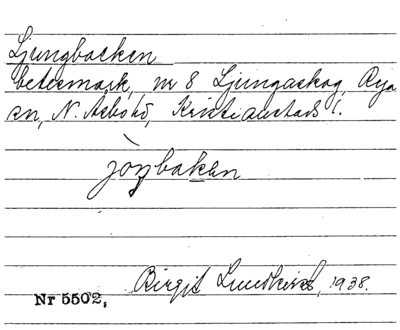 Ljungbacken
betesmark, nr 8 Ljungaskog, Rya
sn, N. Åsbo hd, Kristianstads l.
jòŋbakən
Birgit Lundkvist, 1938.
Nr 5502,